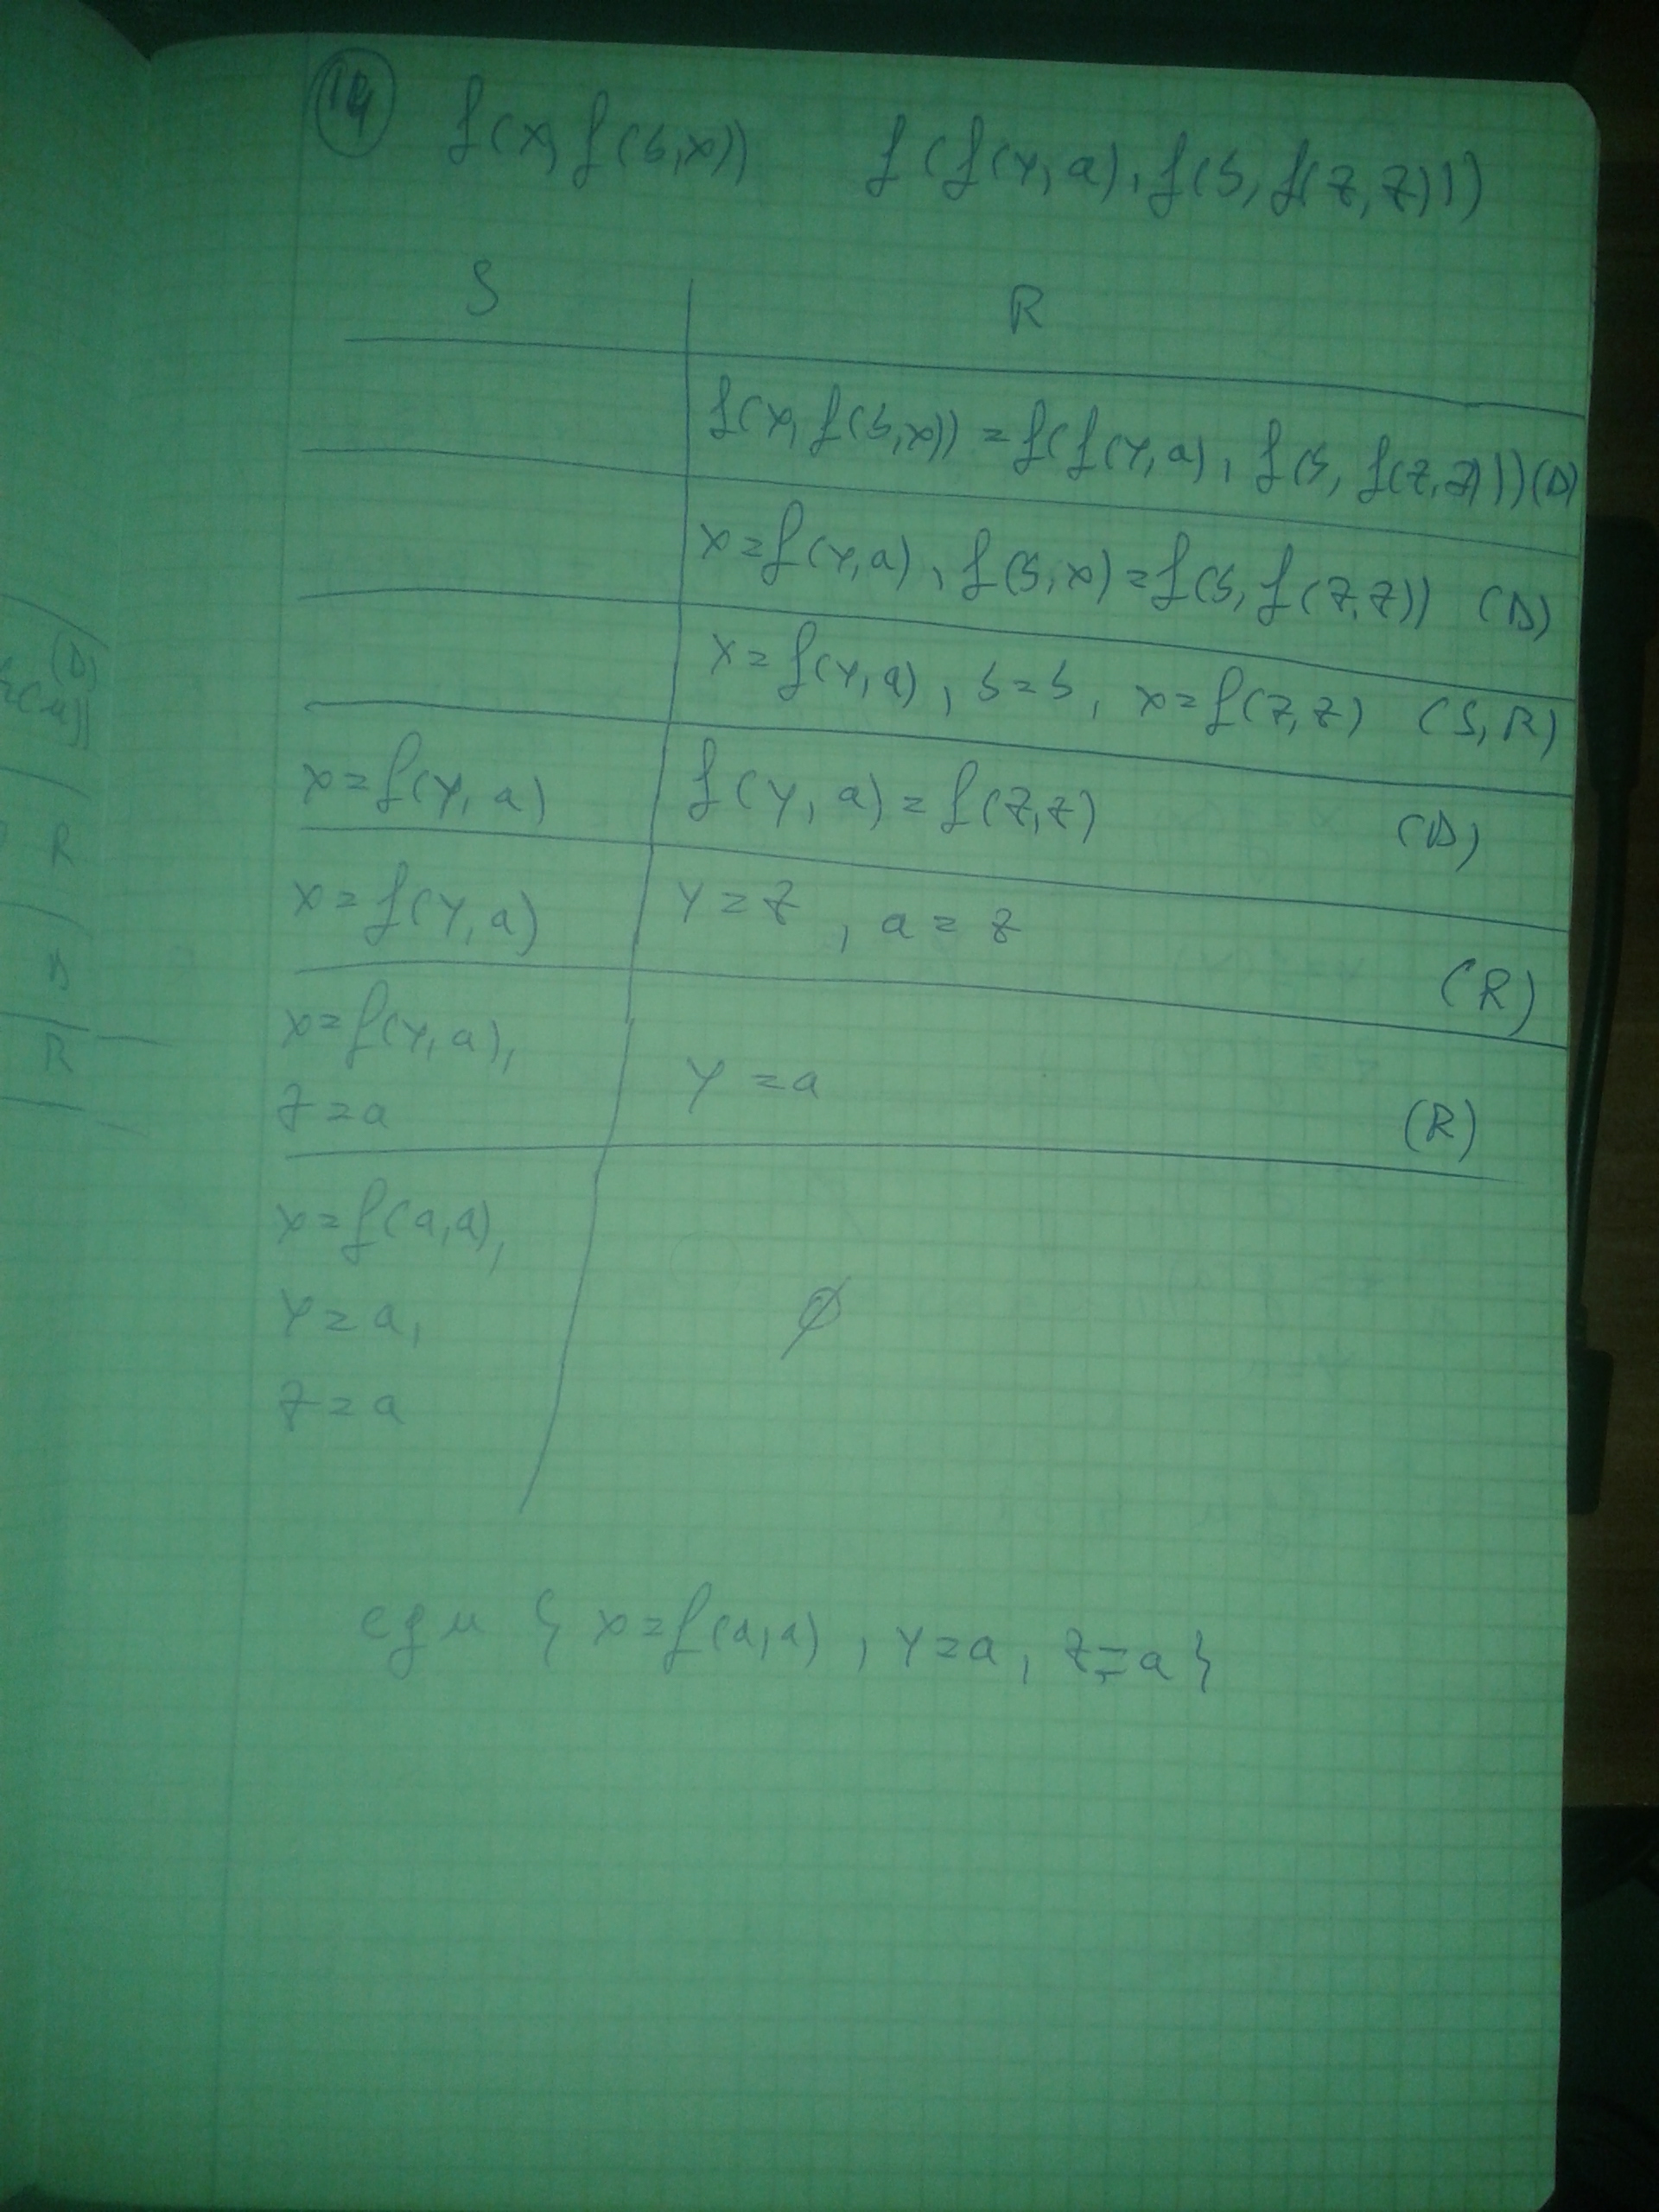 (D)
R
D
R
14 f(x, f(b,x)) f(f(y,a), f(b, f(z,z)))
S R
f(x, f(b,x)) = f(f(y,a), f(b, f(z,z))) (D)
x=f(y,a), f(b,x)=f(b, f(z,z)) (D)
x=f(y,a), b=b, x=f(z,z) (S,R)
x=f(y,a) f(y,a)=f(z,z) (D)
x=f(y,a) y=z, a=z
(R)
x=f(y,a),
z=a y=a
(R)
x=f(a,a),
y=a, ∅
z=a
cgu { x=f(a,a), y=a, z=a }